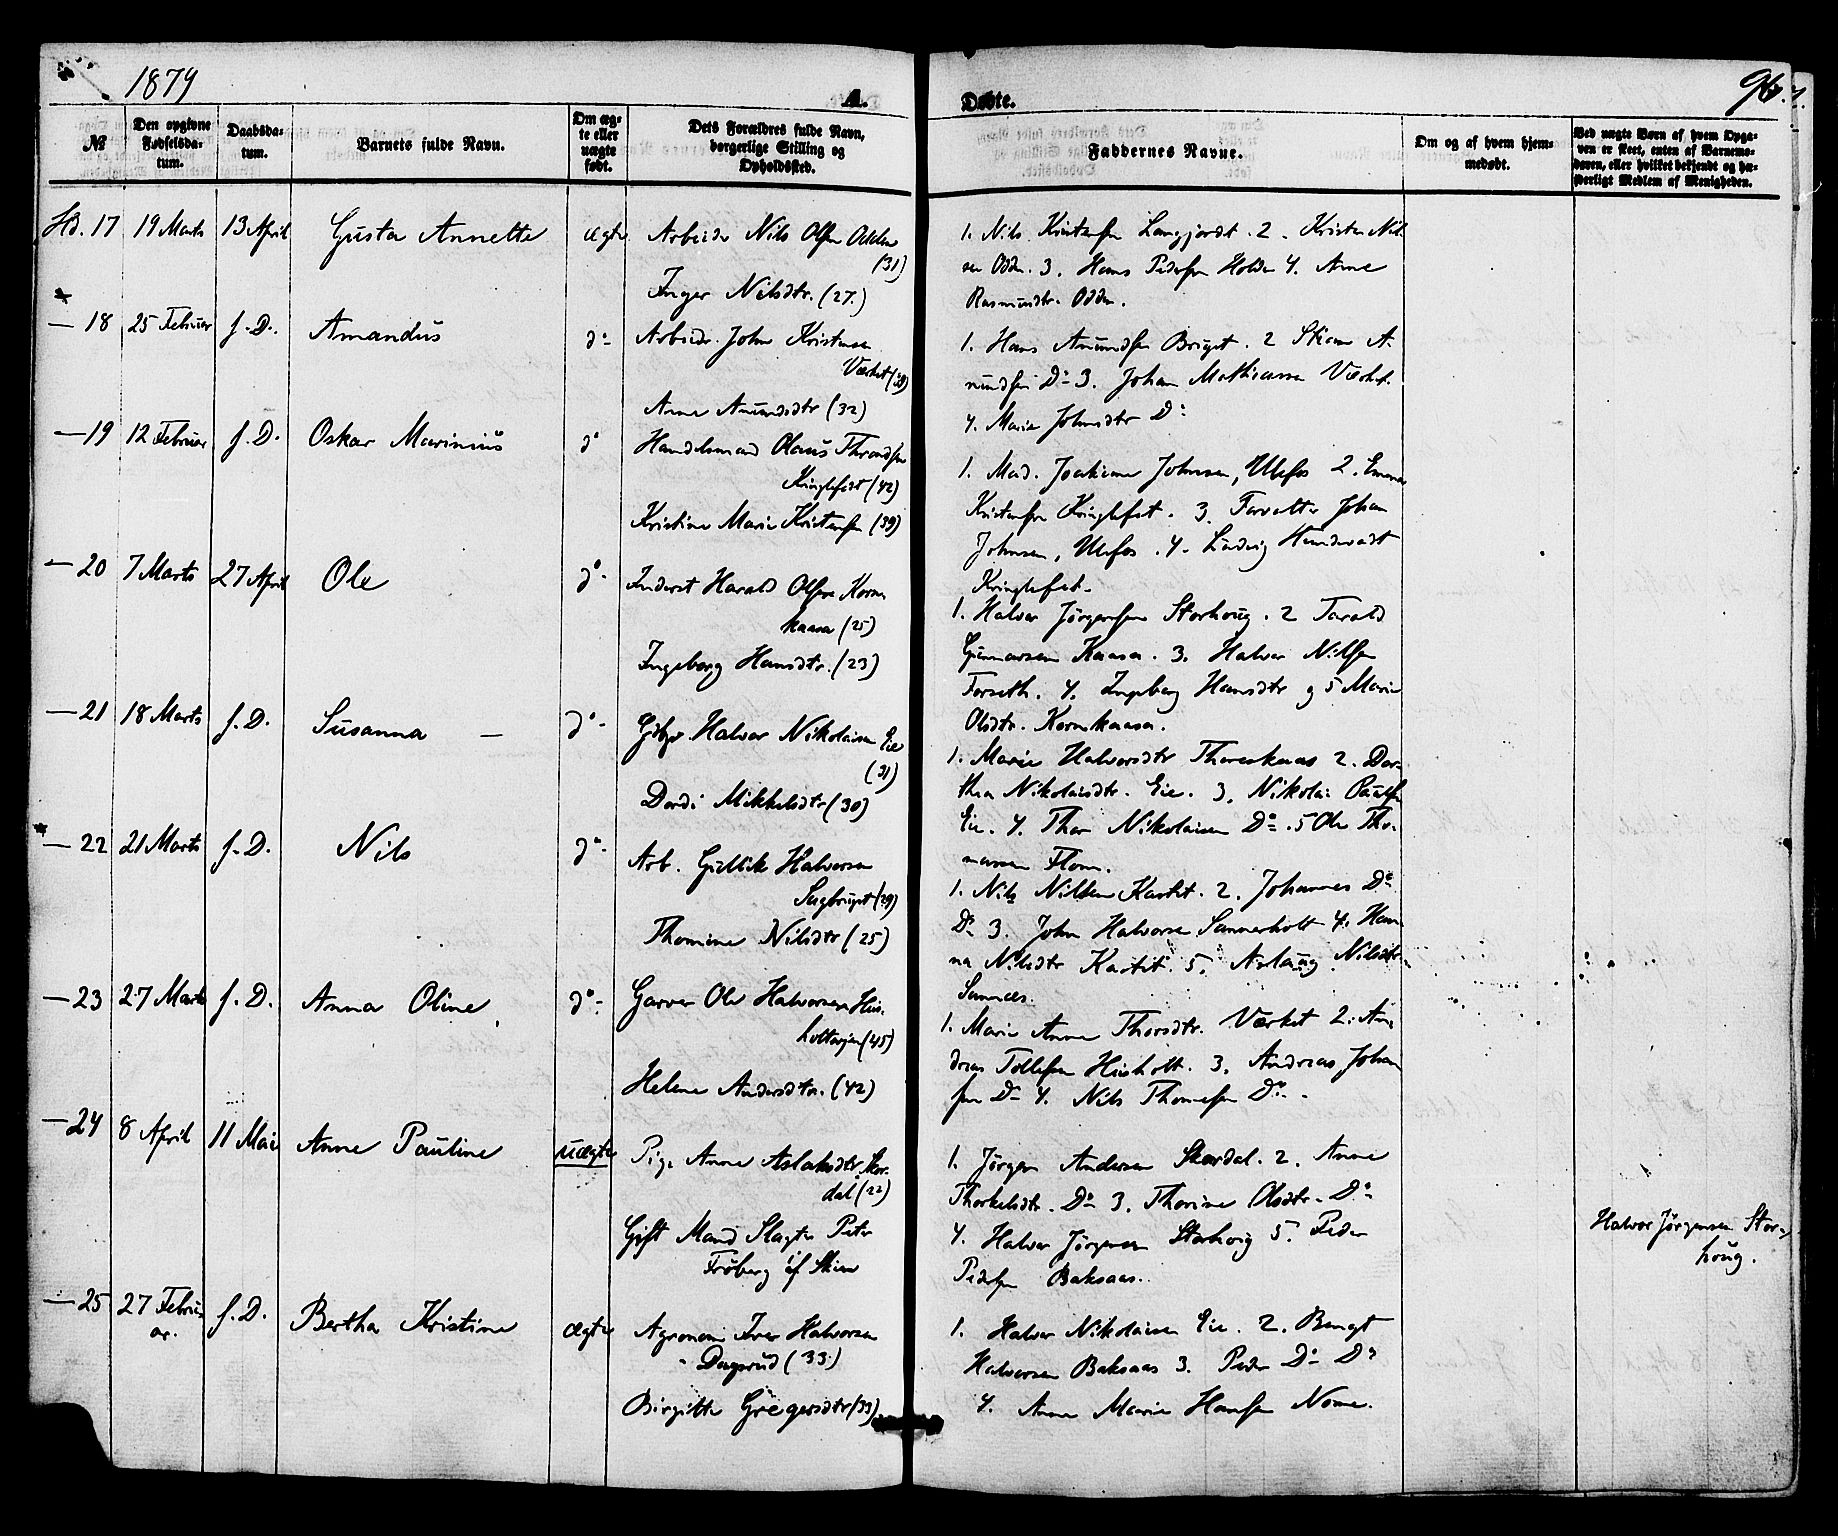 1879
A.
Døbte.
96.
№
Den opgivne Fødselsdatum.
Daabsdatum.
Barnets fulde Navn.
Om ægte eller uægte født.
Dets Forældres fulde Navn, borgerlige Stilling og Opholdssted.
Faddernes Navne.
Om og af hvem hjemmedøbt.
Ved uægte Børn af hvem Opgaven er skeet, enten af Barnemoderen, eller hvilket bekjendt og hæderligt Medlem af Menigheden.
Hd. 17 19 Marts 13 April Gusta Annette ægte Arbeider Nils Olsen Odden
(31)
Inger Nilsdtr. (27.)
1. Nils Kristensen Langjordt. 2. Kristen Nil-
sen Odden. 3. Hans Pedersen Holden 4. Anne
Rasmusdtr. Odden.
— 18 25 Februar f. D. Amandus do Arbeidr. John Kristensen
Værket (29)
Anne Amundsdtr (32)
1. Hans Amundsen Bruget. 2 A-
mundsen Do 3. Johan Mathiassen Værket.
4. Maria Johnsdtr Do
— 19 12 Februar f. D. Oskar Marinius do Handelsmand Olaus Throndsen
Kringlefet (42)
Kristine Marie Kristensen (39)
1. Mad. Joakime Johnsen, Ulefos 2. Emma
Kristensen Kringlefet. 3. Forvalter Johan
Johnsen, Ulefos. 4. Ludvig Hundevadt
Kringlefet.
— 20 7 Marts 27 April Ole do Inderst Harald Olsen Korne
kaasa (25)
Ingeborg Hansdtr. (23)
1. Halvor Jörgensen Storhoug. 2 Tarald
Gunnarsen Kaasa. 3. Halvor Nilsen
Forseth. 4. Ingeborg Hansdtr og 5 Marie
Olsdtr. Kornekaasa.
— 21 18 Marts f. D. Susanna — do Gbgr. Halvor Nikolaisen Eie
(31)
Dordi Mikkelsdtr (30)
1. Marie Halvorsdtr 2. Dor-
thea Nikolaisdtr. Eie. 3. Nikolai Paulsen
Eie. 4. Thor Nikolaisen Do. 5 Ole Tho-
massen Flom.
— 22 21 Marts f. D. Nils do Arb. Gullik Halvorsen
Sagbruget (29)
Thomine Nilsdtr (25)
1. Nils Nilsen Kastet. 2. Johannes Do
Do 3. John Halvorsen Sannerholt 4. Han-
na Nilsdtr Kastet. 5. Aslaug Nilsdtr.
Sannes.
— 23 27 Marts f. D. Anna Oline do Garver Ole Halvorsen His-
holtveien (45)
Helene Andersdtr. (42)
1. Marie Anne Thorsdtr. Værket 2. An-
dreas Tollefsen Hisholt. 3. Andreas Johan
sen Do 4. Nils Thomesen Do.
— 24 8 April 11 Mai Anne Pauline uægte Pige Anne Aslaksdtr. Skar-
dal (22)
Gift Mand Slagter Peter
Fröberg af Skien
1. Jörgen Andersen Skardal. 2. Anne
Thorkelsdtr. Do 3. Thorine Olsdtr. Do
4. Halvor Jörgensen Storhoug 5. Peder
Pedersen Baksaas.
Halvor Jørgensen Stor-
houg.
— 25 27 Februar. f. D. Bertha Kristine ægte Agronom Iver Halvorsen
Dagsrud (33.)
Birgitte Gregersdtr (33)
1. Halvor Nikolaisen Eie. 2. Bengt
Halvorsen Baksaas 3. Peder Do Do
4. Anne Marie Hansen Nome.